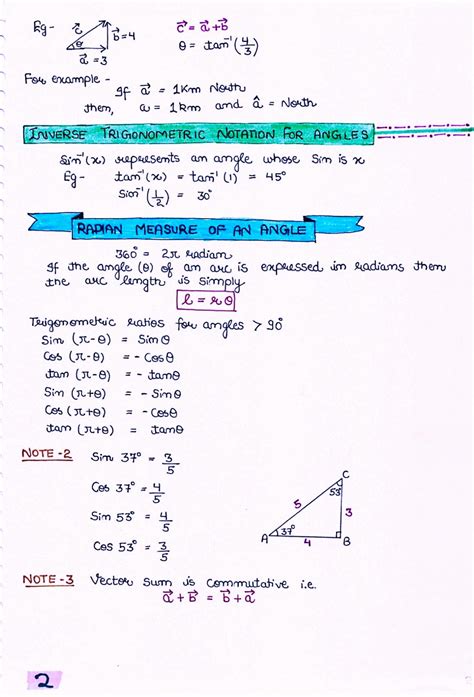 Eg - c⃗ b⃗ = 4 θ a⃗ = 3 c⃗ = a⃗ + b⃗
θ = tan⁻¹(4/3)
For example -
If a⃗ = 1Km North
then, a = 1km and â = North
INVERSE TRIGONOMETRIC NOTATION FOR ANGLES
Sin⁻¹(x) represents an angle whose Sin is x
Eg - tan⁻¹(x) = tan⁻¹(1) = 45°
Sin⁻¹(1/2) = 30°
RADIAN MEASURE OF AN ANGLE
360° = 2π radian
If the angle (θ) of an arc is expressed in radians then
the arc length is simply
l = r θ
Trigonometric ratios for angles > 90°
Sin (π-θ) = Sinθ
Cos (π-θ) = - Cosθ
tan (π-θ) = - tanθ
Sin (π+θ) = - Sinθ
Cos (π+θ) = - Cosθ
tan (π+θ) = tanθ
NOTE -2 Sin 37° = 3/5
Cos 37° = 4/5
Sin 53° = 4/5
Cos 53° = 3/5
C
53°
5
3
A 37°
4
B
NOTE -3 Vector sum is commutative i.e.
a⃗ + b⃗ = b⃗ + a⃗
2